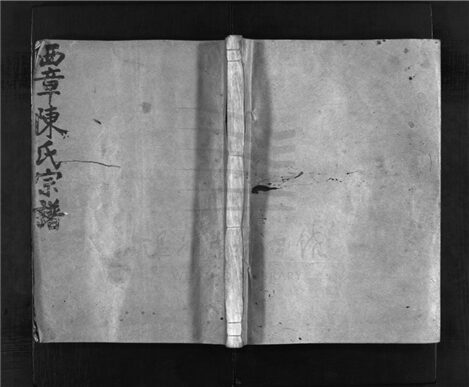 西章陳氏宗譜